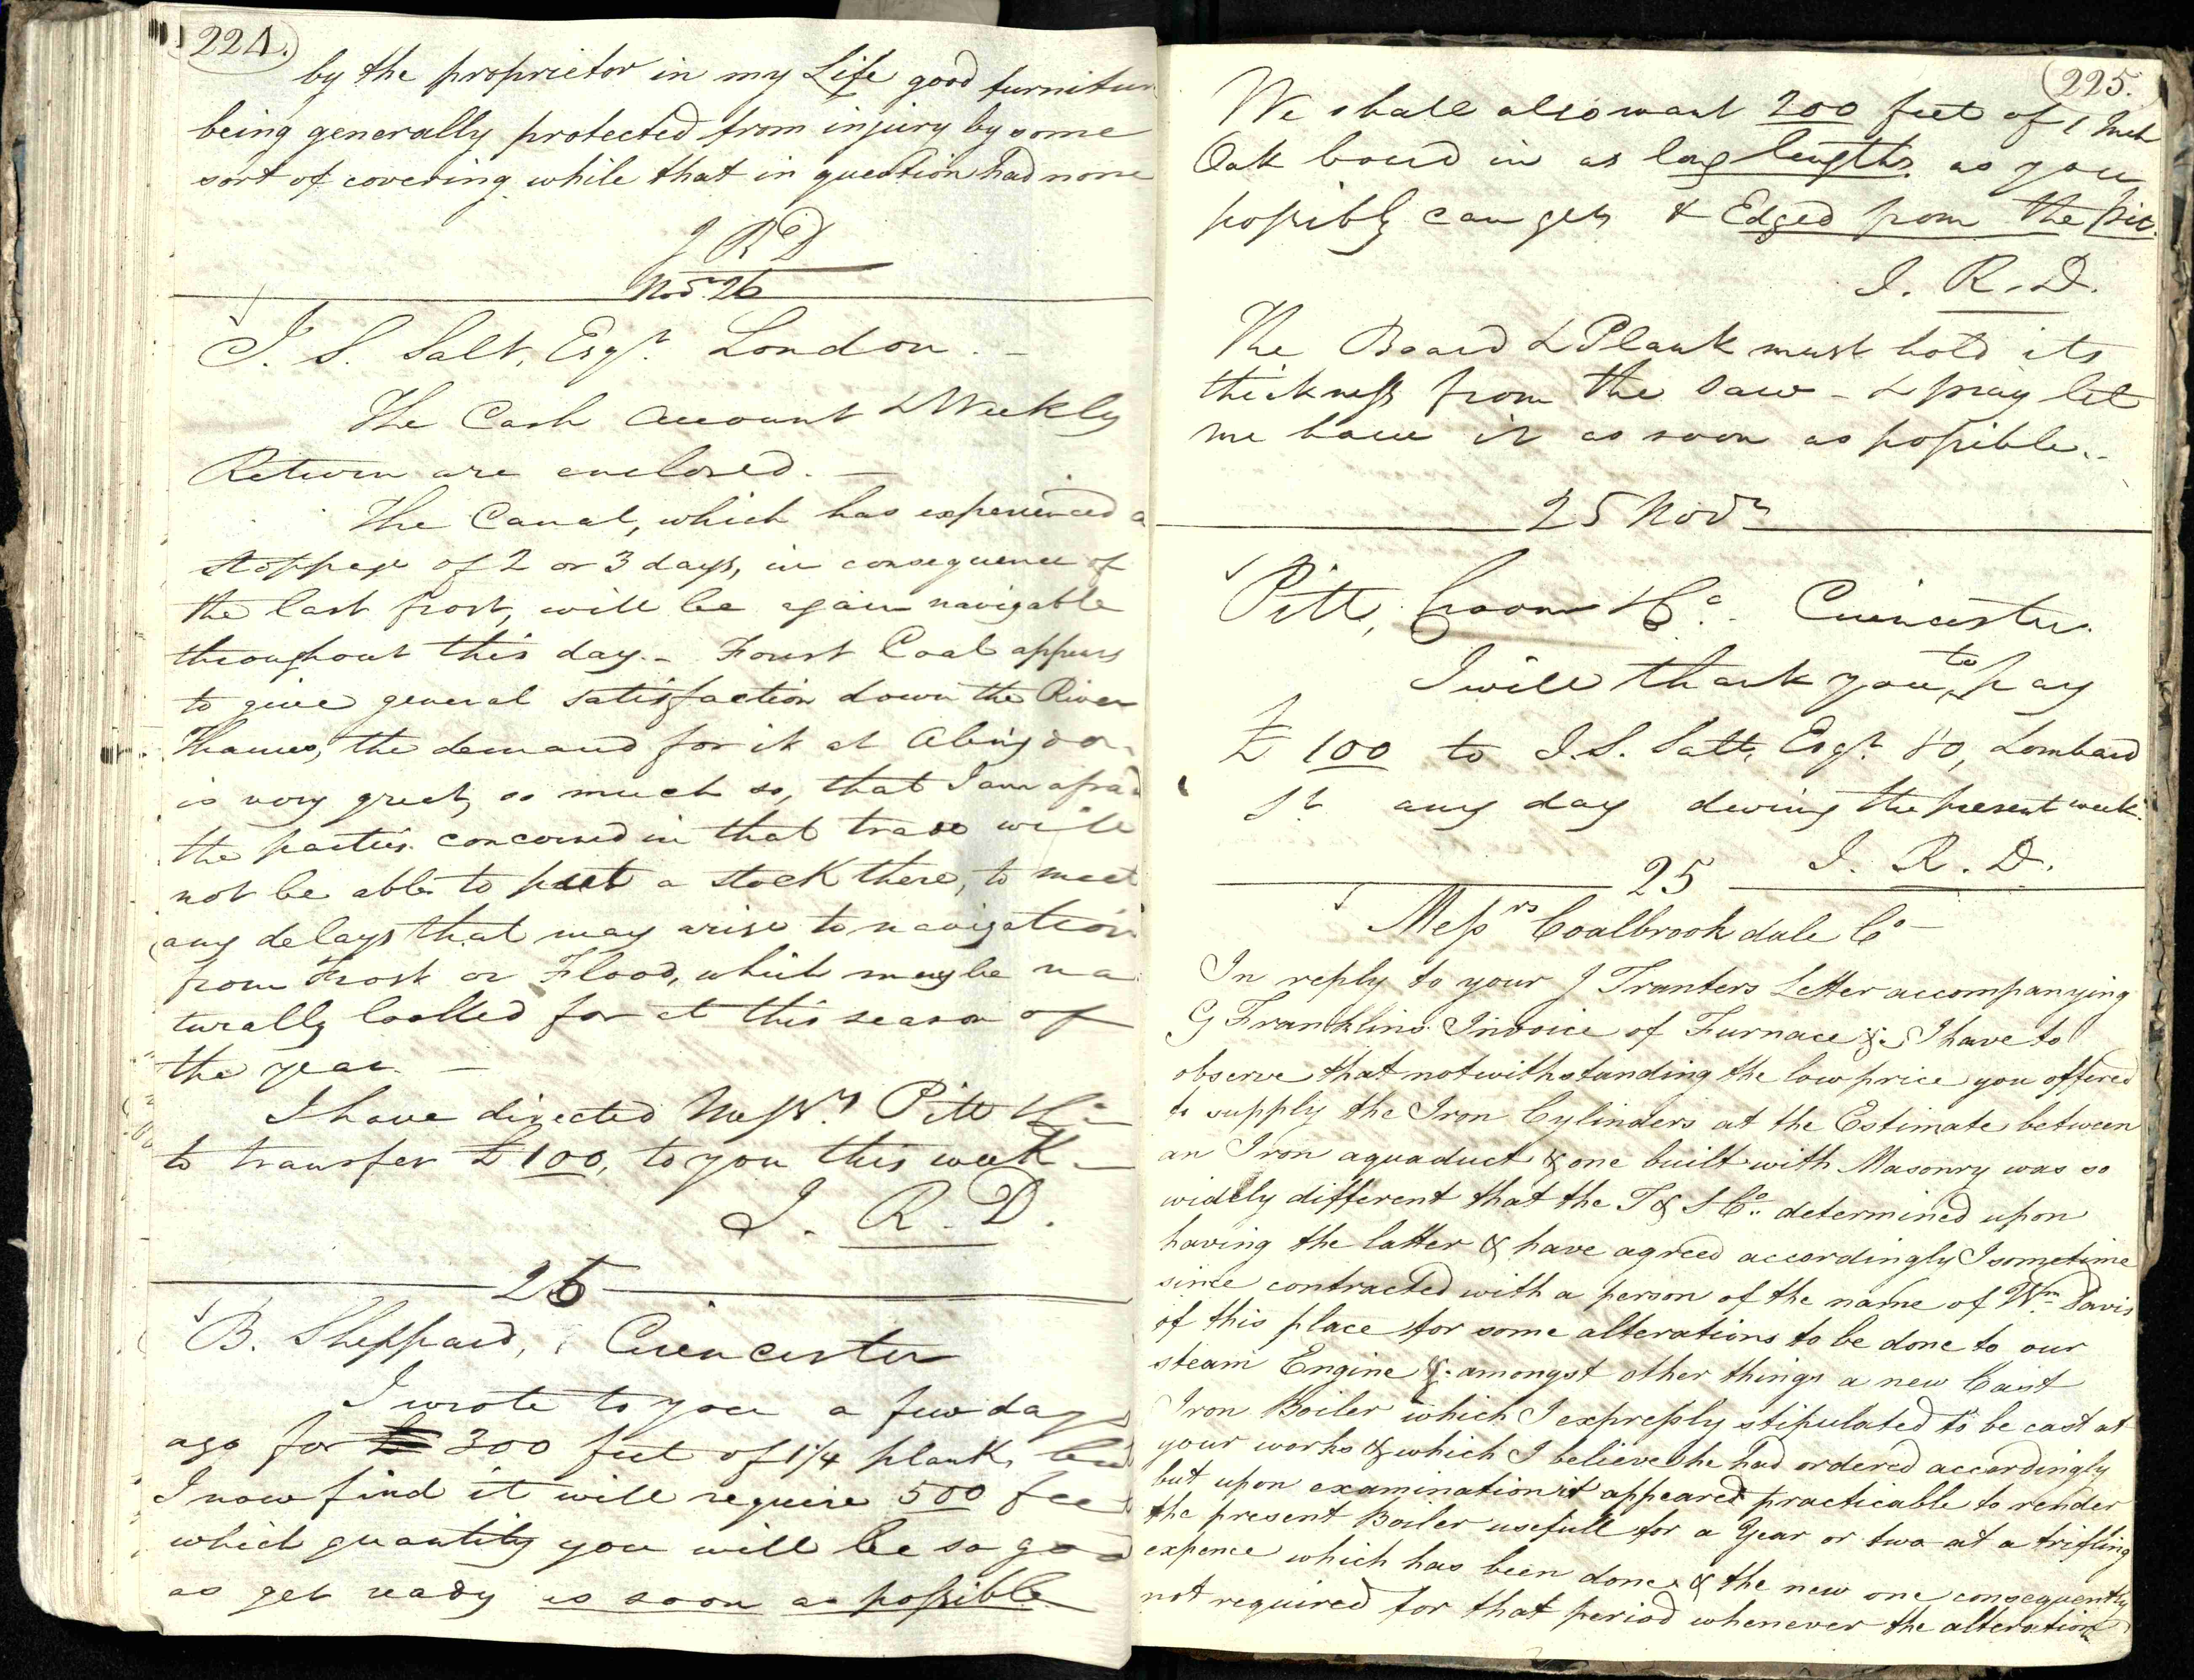 224.
by the proprietor in my Life good furniture
being generally protected from injury by some
sort of covering while that in question had none
J R D
Novr. 26
J. S. Salt, Esqr. London. -
The Cash Account & Weekly
Return are enclosed. -
The Canal, which has experienced a
stoppage of 2 or 3 days, in consequence of
the last frost, will be again navigable
throughout this day. - Forest Coal appears
to give general satisfaction down the River
Thames, the demand for it at Abingdon
is very great, so much so, that I am afraid
the parties concerned in that trade will
not be able to put a stock there, to meet
any delays that may arise to navigation
from Frost or Flood, which may be na
turally looked for at this season of
the year. -
I have directed Messrs. Pitt & Co
to transfer £100, to you this week -
J. R. D.
26
B. Sheppard, Cirencester
I wrote to you a few days
ago for 300 feet of 1 1/4 plank, but
I now find it will require 500 feet
which quantity you will be so good
as get ready as soon as possible
225.
We shall also want 200 feet of 1 Inch
Oak board in as long lengths as you
possibly can get & Edged from the pit.
J. R. D.
The Board & Plank must hold its
thickness from the Saw - & pray let
me have it as soon as possible. -
25 Novr
Pitt, Croome & Co. Cirencester
I will thank you to pay
£ 100 to J. S. Salt, Esqr. 80, Lombard
St any day during the present week.
J. R. D.
25
Messrs Coalbrookdale Co -
In reply to your J Tranters Letter accompanying
G Franklins Invoice of Furnace &c I have to
observe that notwithstanding the low price you offered
to supply the Iron Cylinders at the Estimate between
an Iron aquaduct & one built with Masonry was so
widely different that the T & S Co. determined upon
having the latter & have agreed accordingly I sometime
since contracted with a person of the name of Wm Davis
of this place for some alterations to be done to our
steam Engine & amongst other things a new Cast
Iron Boiler which I expressly stipulated to be cast at
your works & which I believe he had ordered accordingly
but upon examination it appeared practicable to render
the present Boiler usefull for a Year or two at a trifling
expence which has been done & the new one consequently
not required for that period whenever the alteration